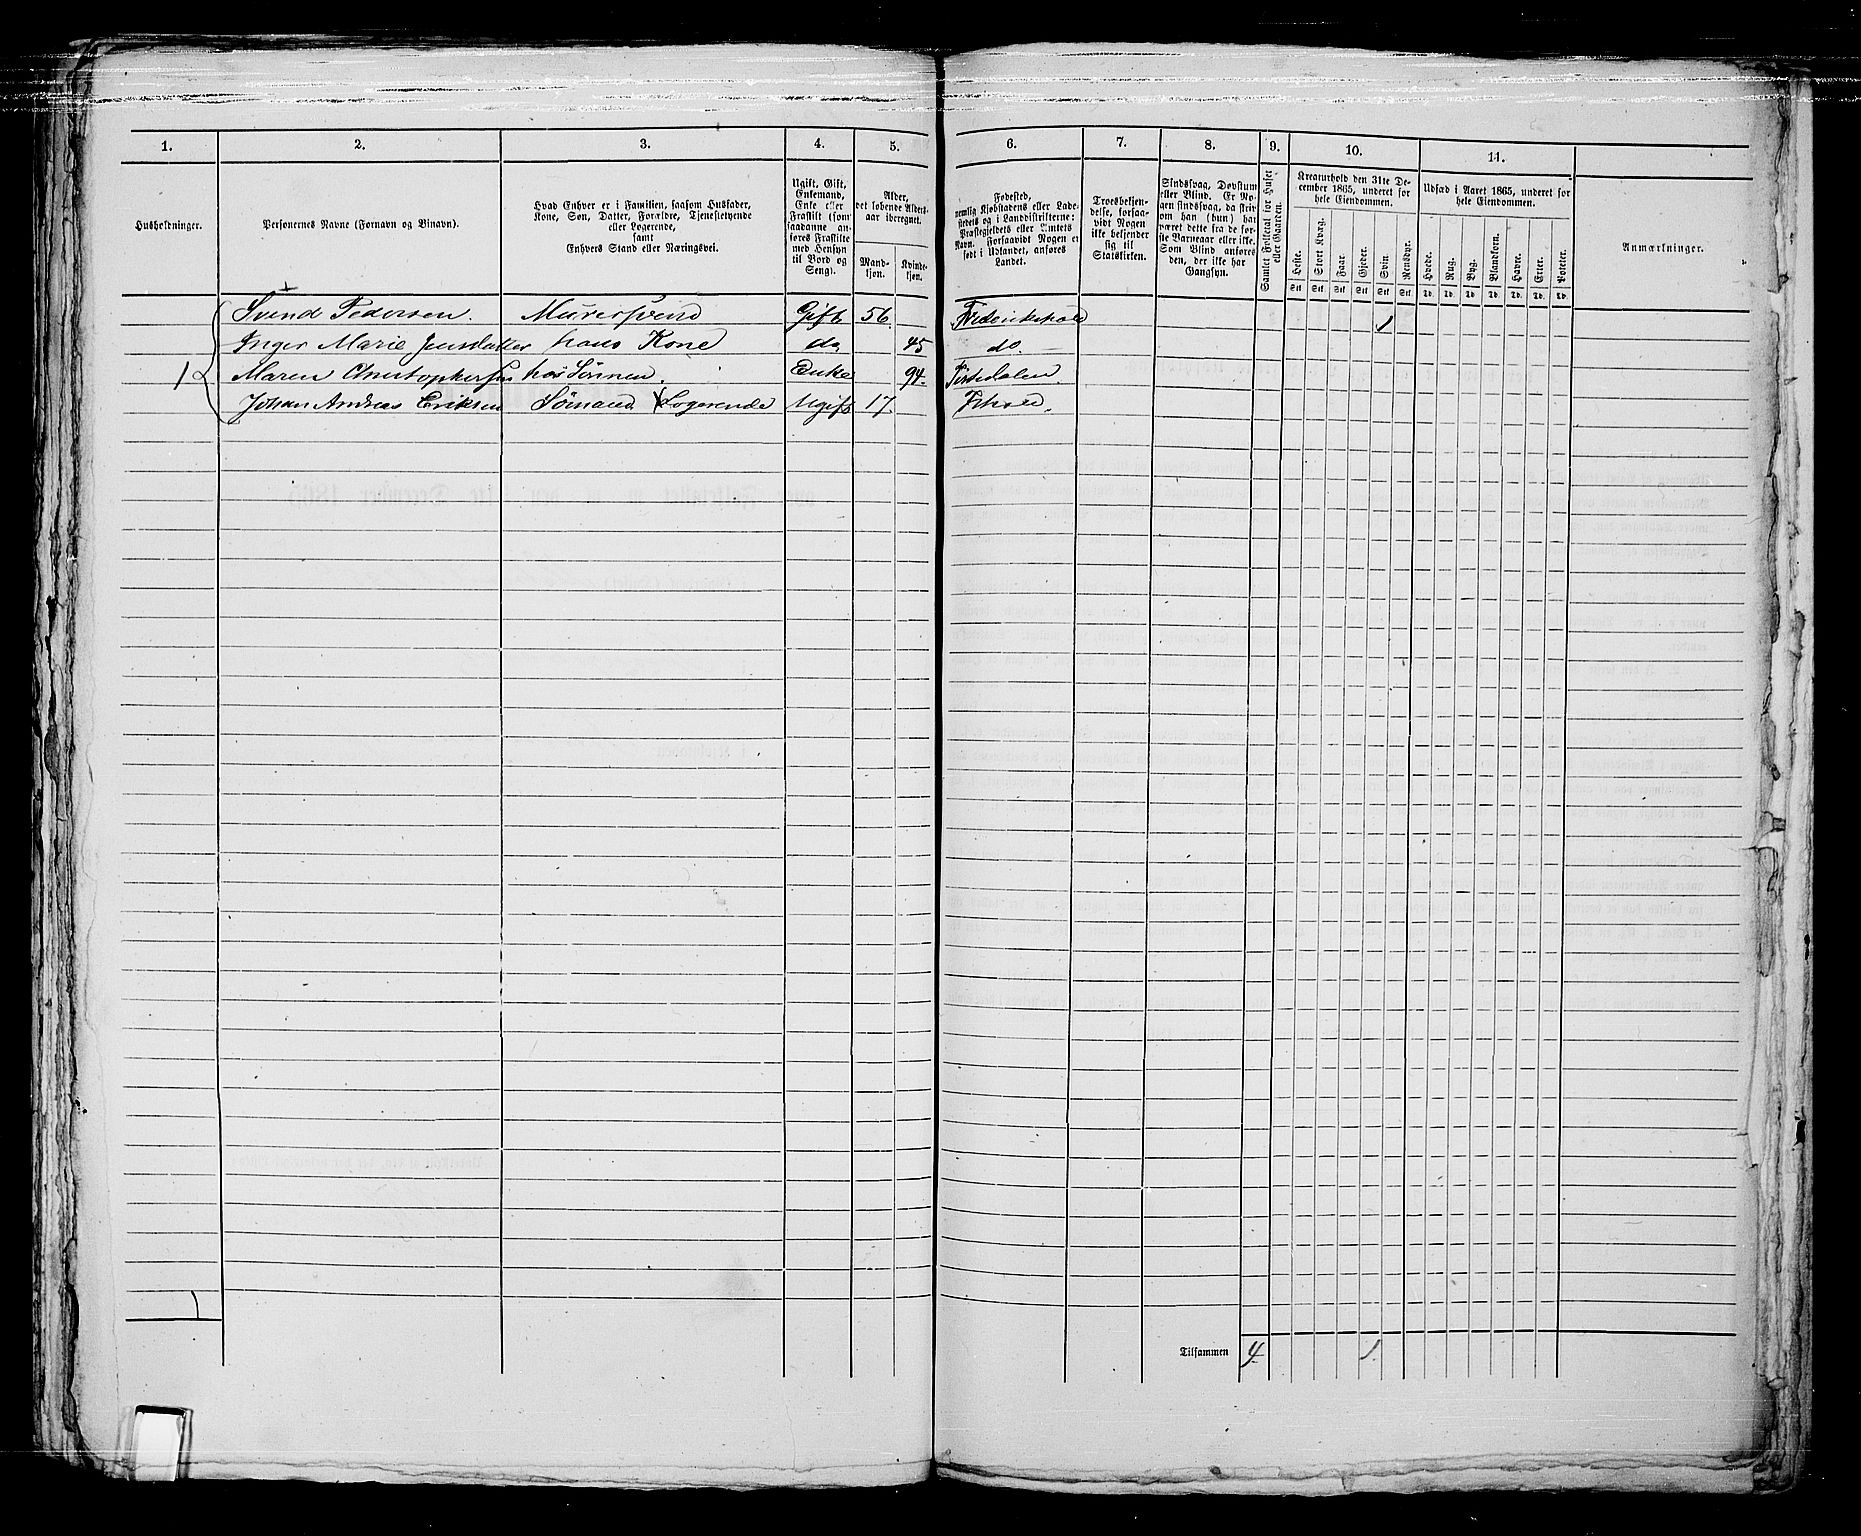 1. 2. 3. 4. 5. 6. 7. 8. 9. 10. 11.
Husholdninger.
Personernes Navne (Fornavn og Binavn).
Hvad Enhver er i Familien, saasom Husfader, Kone, Søn, Datter, Forældre, Tjenestetyende eller Logerende, samt Enhvers Stand eller Næringsvei.
Ugift, Gift, Enkemand, Enke eller Fraskilt (som saadanne anføres Fraskilte med Hensyn til Bord og Seng).
Alder, det løbende Aldersaar iberegnet.
Mandkjøn. Kvindekjøn.
Fødested, nemlig Kjøbstadens eller Ladestedets og i Landdistrikterne: Præstegjeldets eller Amtets Navn. Forsaavidt Nogen er født i Udlandet, anføres Landet.
Troesbekjendelse, forsaavidt Nogen ikke bekjender sig til Statskirken.
Sindssvag, Døvstum eller Blind. Er Nogen sindssvag, da skrives om han (hun) har været dette fra de første Barneaar eller ikke. Som Blind anføres den, der ikke har Gangsyn.
Samlet Folketal for Huset eller Gaarden.
Kreaturhold den 31te December 1865, underet for hele Eiendommen.
Heste. Stort Kvæg. Faar. Gjeder. Svin. Rensdyr.
Stk. Stk. Stk. Stk. Stk. Stk.
Udsæd i Aaret 1865, underet for hele Eiendommen.
Hvede. Rug. Byg. Blandkorn. Havre. Erter. Poteter.
Td. Td. Td. Td. Td. Td. Td.
Anmærkninger.
Svend Pedersen. Murersvend Gift 56. Frederikshald 1
Inger Marie Jensdatter hans Kone do. 45 do.
1 Maren Christophersen hos Sönnen. Enke 94. Tistedalen.
Johan Andreas Eriksen Sömand. Logerende Ugift 17. Frhald.
1
Tilsammen 4 1.